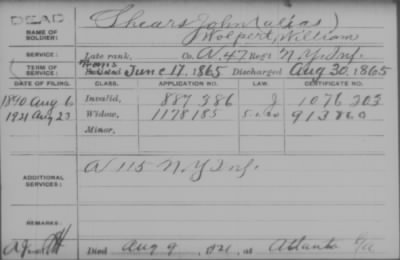 DEAD
NAME OF SOLDIER:
Shears, John (alias)
Wolpert, William
SERVICE:
Late rank, Co. A. 47 Reg't N.Y. Inf.
TERM OF SERVICE:
Enlisted June 17, 1865 Discharged Aug 30, 1865
DATE OF FILING. CLASS. APPLICATION NO. LAW. CERTIFICATE NO.
1890 Aug 6 Invalid, 887.386 1076 203
1921 Aug 23 Widow, 1178185 913860
Minor,
ADDITIONAL SERVICES:
A 115 N.Y. Inf.
REMARKS:
Died Aug 9, 1921, at Atlanta Ga